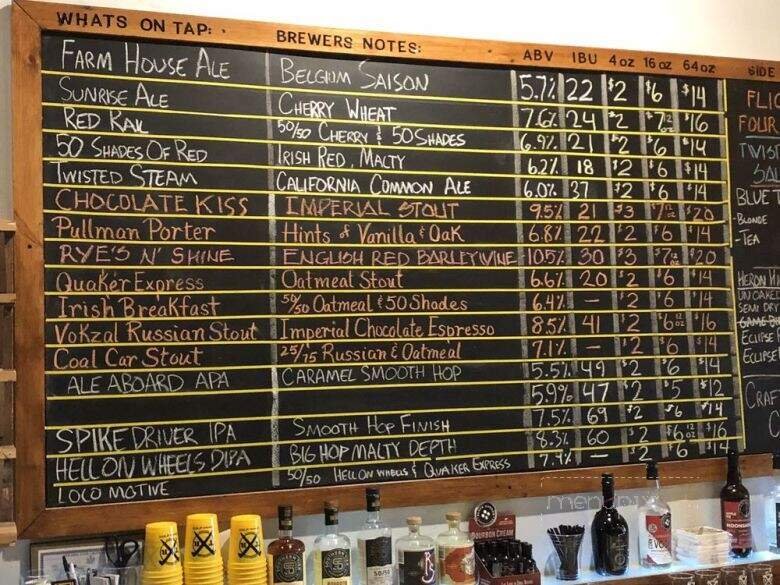 WHATS ON TAP: BREWERS NOTES: ABV IBU 4oz 16oz 64oz SIDE
FARM HOUSE ALE BELGIUM SAISON 5.7% 22 $2 $6 $14
SUNRISE ALE CHERRY WHEAT 7.6% 24 $2 $7 12oz $16
RED RAIL 50/50 CHERRY & 50 SHADES 6.9% 21 $2 $6 $14
50 SHADES OF RED IRISH RED, MALTY 6.2% 18 $2 $6 $14
TWISTED STEAM CALIFORNIA COMMON ALE 6.0% 37 $2 $6 $14
CHOCOLATE KISS IMPERIAL STOUT 9.5% 21 $3 $7 12oz $20
Pullman Porter Hints of Vanilla & Oak 6.8% 22 $2 $6 $14
RYE'S N' SHINE ENGLISH RED BARLEYWINE 10.5% 30 $3 $7 12oz $20
Quaker Express Oatmeal Stout 6.6% 20 $2 $6 $14
Irish Breakfast 50/50 Oatmeal & 50 Shades 6.4% — $2 $6 $14
Vokzal Russian Stout Imperial Chocolate Espresso 8.5% 41 $2 $6 12oz $16
Coal Car Stout 25/75 Russian & Oatmeal 7.1% — $2 $6 $14
ALE ABOARD APA CARAMEL SMOOTH HOP 5.5% 49 $2 $6 $14
5.9% 47 $2 $5 $12
SPIKE DRIVER IPA SMOOTH HOP FINISH 7.5% 69 $2 $6 $14
HELL ON WHEELS DIPA BIG HOP MALTY DEPTH 8.3% 60 $2 $6 12oz $16
LOCO MOTIVE 50/50 HELL ON WHEELS & QUAKER EXPRESS 7.4% — $2 $6 $14
FLIG
FOUR
TWIST
BLUE T
-BLONDE
-TEA
HERON H
UNOAKED
SEMI DRY
ECLIPSE
ECLIPSE
CRAF
BOURBON CREAM
50/50
MOONSH
menupix